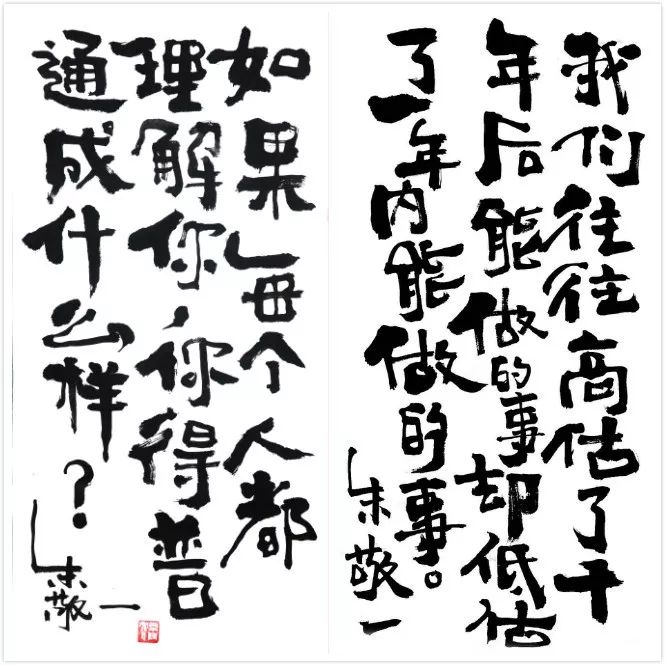 我们往往高估了千
年后能做的事却低估
了一年内能做的事。
朱敬一
如果每个人都
理解你,你得普
通成什么样?
朱敬一